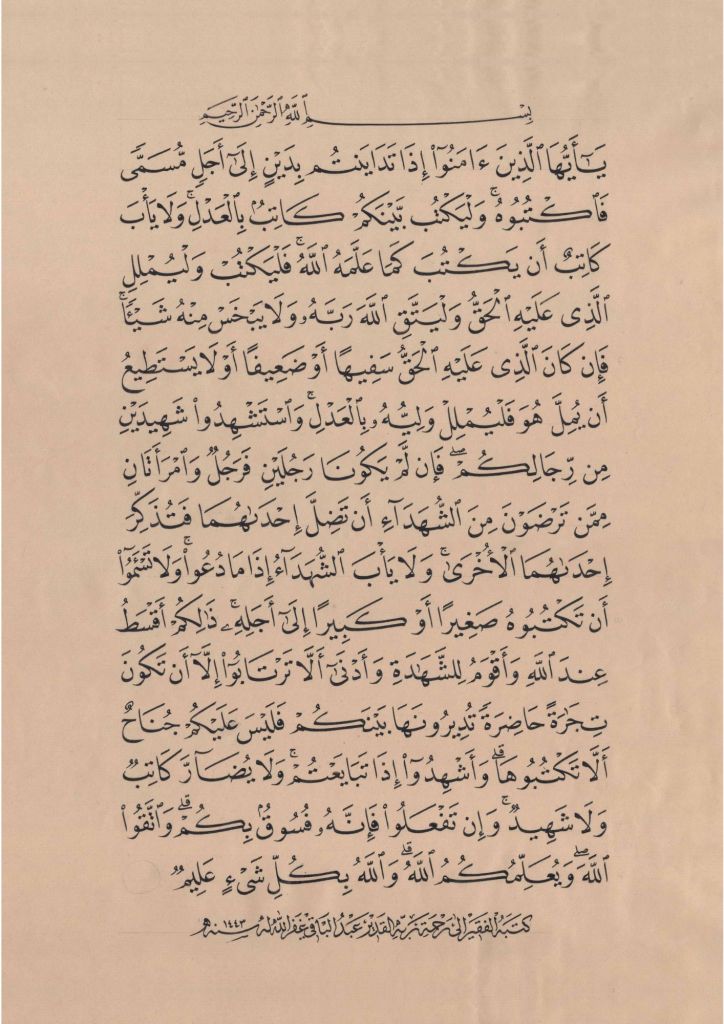 بِسْمِ ٱللَّهِ ٱلرَّحْمَٰنِ ٱلرَّحِيمِ
يَٰٓأَيُّهَا ٱلَّذِينَ ءَامَنُوٓا۟ إِذَا تَدَايَنتُم بِدَيْنٍ إِلَىٰٓ أَجَلٍ مُّسَمًّى
فَٱكْتُبُوهُ ۚ وَلْيَكْتُب بَّيْنَكُمْ كَاتِبٌۢ بِٱلْعَدْلِ ۚ وَلَا يَأْبَ
كَاتِبٌ أَن يَكْتُبَ كَمَا عَلَّمَهُ ٱللَّهُ ۚ فَلْيَكْتُبْ وَلْيُمْلِلِ
ٱلَّذِى عَلَيْهِ ٱلْحَقُّ وَلْيَتَّقِ ٱللَّهَ رَبَّهُۥ وَلَا يَبْخَسْ مِنْهُ شَيْـًٔا ۚ
فَإِن كَانَ ٱلَّذِى عَلَيْهِ ٱلْحَقُّ سَفِيهًا أَوْ ضَعِيفًا أَوْ لَا يَسْتَطِيعُ
أَن يُمِلَّ هُوَ فَلْيُمْلِلْ وَلِيُّهُۥ بِٱلْعَدْلِ ۚ وَٱسْتَشْهِدُوا۟ شَهِيدَيْنِ
مِن رِّجَالِكُمْ ۖ فَإِن لَّمْ يَكُونَا رَجُلَيْنِ فَرَجُلٌ وَٱمْرَأَتَانِ
مِمَّن تَرْضَوْنَ مِنَ ٱلشُّهَدَآءِ أَن تَضِلَّ إِحْدَىٰهُمَا فَتُذَكِّرَ
إِحْدَىٰهُمَا ٱلْأُخْرَىٰ ۚ وَلَا يَأْبَ ٱلشُّهَدَآءُ إِذَا مَا دُعُوا۟ ۚ وَلَا تَسْـَٔمُوٓا۟
أَن تَكْتُبُوهُ صَغِيرًا أَوْ كَبِيرًا إِلَىٰٓ أَجَلِهِۦ ۚ ذَٰلِكُمْ أَقْسَطُ
عِندَ ٱللَّهِ وَأَقْوَمُ لِلشَّهَٰدَةِ وَأَدْنَىٰٓ أَلَّا تَرْتَابُوٓا۟ ۖ إِلَّآ أَن تَكُونَ
تِجَٰرَةً حَاضِرَةً تُدِيرُونَهَا بَيْنَكُمْ فَلَيْسَ عَلَيْكُمْ جُنَاحٌ
أَلَّا تَكْتُبُوهَا ۗ وَأَشْهِدُوٓا۟ إِذَا تَبَايَعْتُمْ ۚ وَلَا يُضَآرَّ كَاتِبٌ
وَلَا شَهِيدٌ ۚ وَإِن تَفْعَلُوا۟ فَإِنَّهُۥ فُسُوقٌۢ بِكُمْ ۗ وَٱتَّقُوا۟
ٱللَّهَ ۖ وَيُعَلِّمُكُمُ ٱللَّهُ ۗ وَٱللَّهُ بِكُلِّ شَىْءٍ عَلِيمٌ
كتبه الفقير إلى رحمة ربه القدير عبد الباقي غفر الله له سنة ١٤٤٣هـ